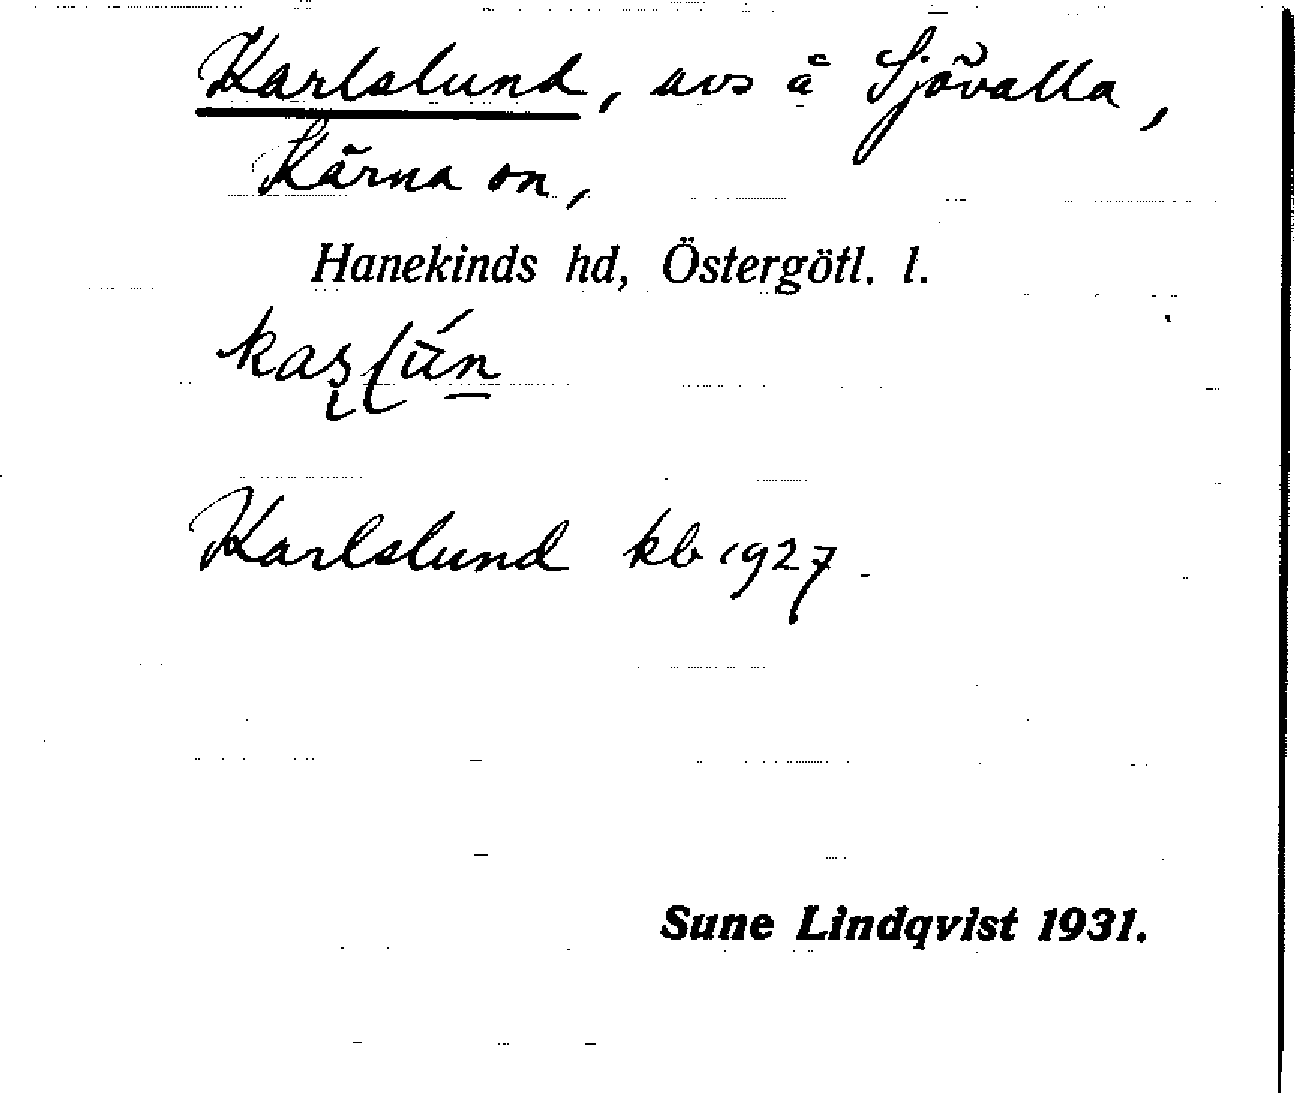 Karlslund, avs å Sjövalla,
Kärna sn,
Hanekinds hd, Östergötl. l.
Karlslund kb 1927
Sune Lindqvist 1931.